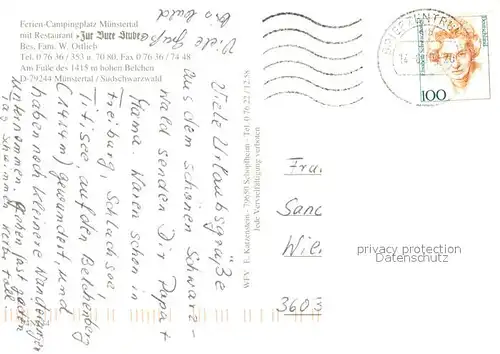 Ferien-Campingplatz Münstertal
mit Restaurant »Zur Bure Stube«
Bes. Fam. W. Ortlieb
Tel. 0 76 36 / 353 u. 70 80, Fax 0 76 36 / 74 48
Am Fuße des 1415 m hohen Belchen
D-79244 Münstertal / Südschwarzwald
Viele Grüße
Viele Urlaubsgrüße
aus dem schönen Schwarz-
wald senden Dir Papa +
Mama. Waren schon in
Freiburg, Schluchsee,
Titisee, auf den Belchenberg
(1414m) gewandert, und
haben noch kleinere Wanderungen
unternommen. Gehen fast jeden
Tag schwimmen.
WFV E. Katzenstein - 79650 Schopfheim - Tel. 0 76 22 / 12 58
Jede Vervielfältigung verboten
BRIEFZENTRUM
100
Fra.
Sanc
Wie.
3603
privacy protection
Datenschutz